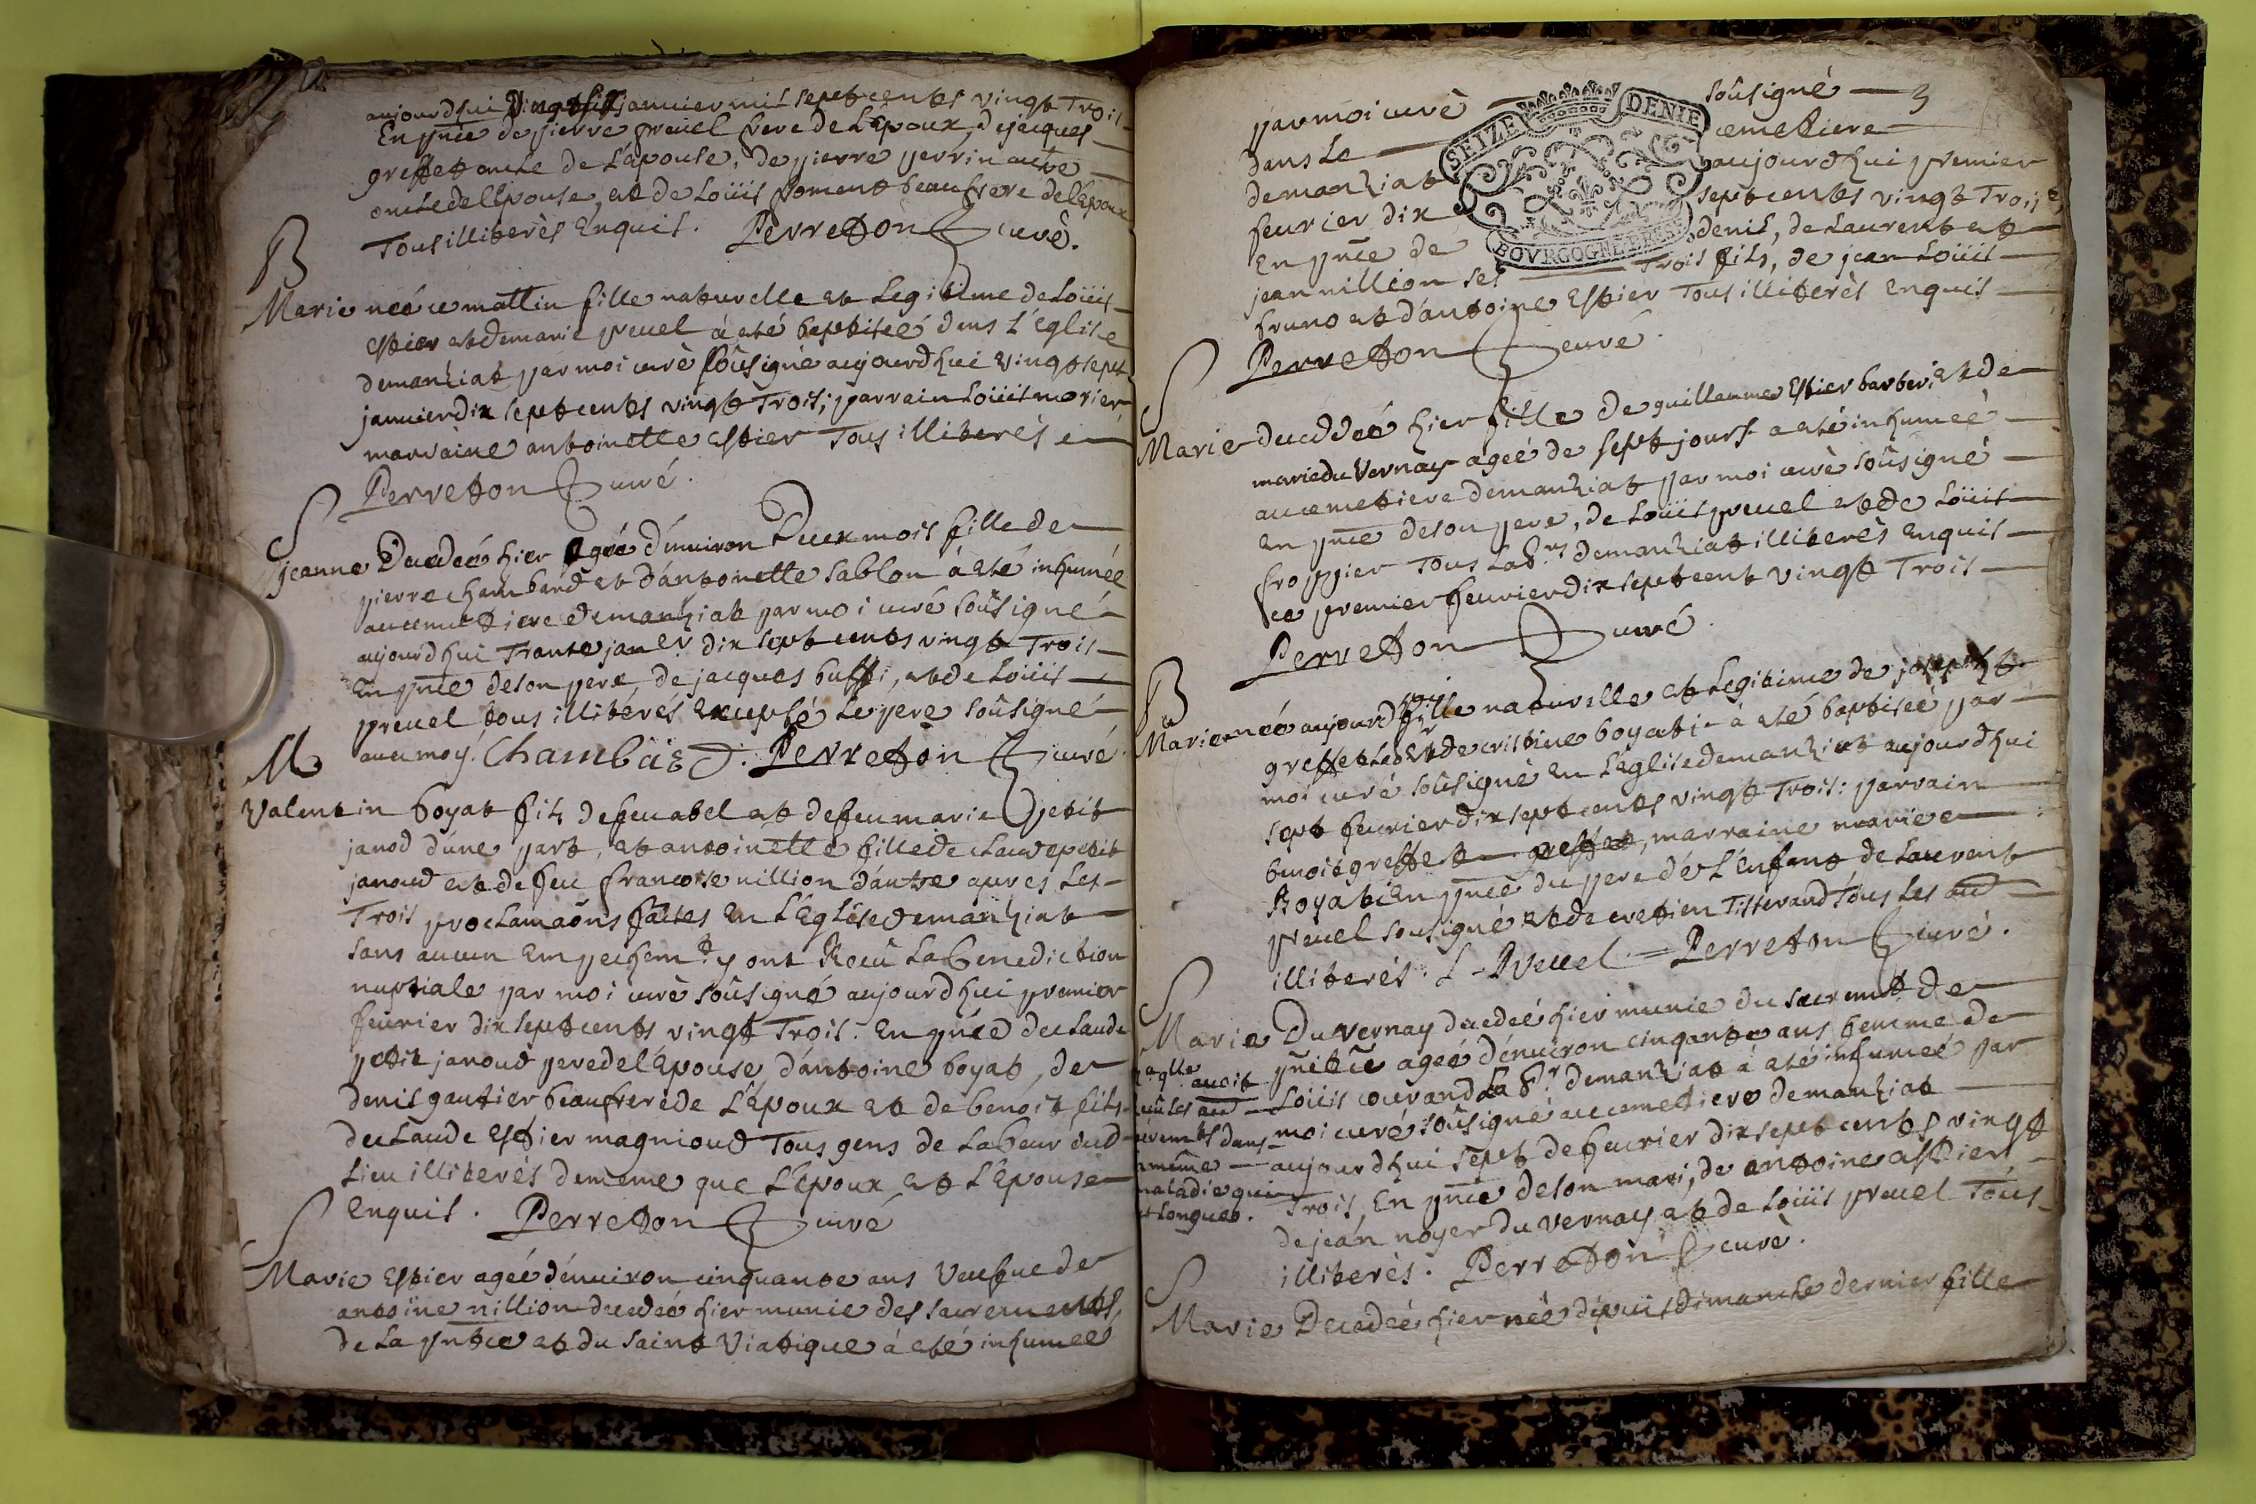 aujourdhui vingt six janvier mil sept cents vingt Trois
En pn̄ce de pierre preuel frere de L'Epoux, de jacques
greffet oncle de L'epouse, de pierre perrin autre
oncle de l'Epouse, et de Loüis poment beaufrere de l'Epoux
Tous illiterés Enquis. Perreton curé.
B
Marie neé ce mattin fille naturelle et Legitime de Loüis
Estier et de marie preuel á eté baptiseé dans L'Eglise
demanziat par moi curé soûsigné aujourdhui vingt sept
janvier dix sept cents vingt Trois; parrain Loüis morier
marraine antoinette Estier Tous illiterés
Perreton curé.
S
jeanne Decedeé hier ageé d'environ Deux mois fille de
pierre chambard et d'antoinette Sablon á eté inhumée
au cemetiere demanziat par moi curé soûsigné
aujourdhui Trante janer dix sept cents vingt Trois
En pn̄ce de son pere, de jacques buffi, et de Loüis
preuel tous illiterés Excepté Le pere soûsigné
avec moy. Chambard. Perreton curé
M
Valentin boyat fils de feu abel et de feu marie petit
janod d'une part, et antoinette fille de claude petit
janoud et de feu francoise nillion d'autre apres Les
Trois proclamaōns faites En L'Eglise demanziat
sans aucun Empechemt. y ont Receû La benediction
nuptiale par moi curé soûsigné aujourdhui premier
feurier dix sept cents vingt Trois. En pn̄ce de claude
petit janoud pere de l'Epouse d'antoine boyat, de
denis gautier beaufrere de L'Epoux et de benoit fils
de claude Estier magnioud Tous gens de Labeur dud
Lieu illiterés dememe que L'Epoux et L'Epouse
Enquis. Perreton curé
S
Marie Estier ageé d'environ cinquante ans veufue de
antoine nillion decedeé hier munie des sacrements
de La pn̄tce et du saint Viatique á eté inhumeé
par moi curé soûsigné 3
dans Le cemetiere
demanziat aujourdhui premier
feurier dix sept cents vingt Trois,
En pn̄ce de denis, de Laurent et
jean nillion ses Trois fils, de jean Loüis
fruno et d'antoine Estier Tous illiterés Enquis
SEIZE DENIE
BOVRGOGNE
Perreton curé
S
Marie decedeé hier fille de guillaume Estier barberi et de
marie du Vernay ageé de sept jours a eté inhumeé
au cemetiere demanziat par moi curé soûsigné
En pn̄ce de son pere, de Loüis preuel et de Loüis
froppier Tous Labrs demanziat illiterés Enquis
ce premier feurier dix sept cent vingt Trois
Perreton curé.
B
Marie neé aujourdhui fille naturelle et Legitime de josepht
greffet Labr et de cristine boyat á eté baptiseé par
moi curé soûsigné En L'eglise demanziat aujourdhui
sept feurier dix sept cents vingt Trois: parrain
benoit greffet, marraine marie
Boyat En pn̄ce du pere de L'Enfant de Laurent
preuel sousigné et de cretien Tisserand Tous Les aud
illiterés. L - Preuel = Perreton curé.
S
Marie Du vernay decedeé hier munie du sacremt de
pn̄itce ageé d'environ cinqante ans femme de
Loüis couvand Labr. demanziat á eté inhumeé par
moi curé soûsigné au cemetiere demanziat
aujourdhui sept de feurier dix sept cents vingt
Trois, En pn̄ce de son mari, de antoine Estier,
de jean noyer du vernay et de Loüis preuel Tous
illiterés. Perreton curé.
avoit
dans
même
maladie qui
Longue.
S
Marie Decedeé hier neé depuis dimanche dernier fille